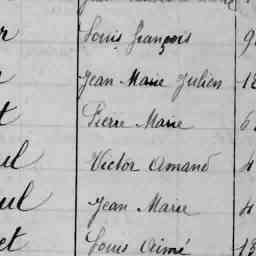 r Louis François 9
Jean Marie Julien 18
t Pierre Marie 6
ul Victor Amand 4
ul Jean Marie 4
et Louis Aimé 13